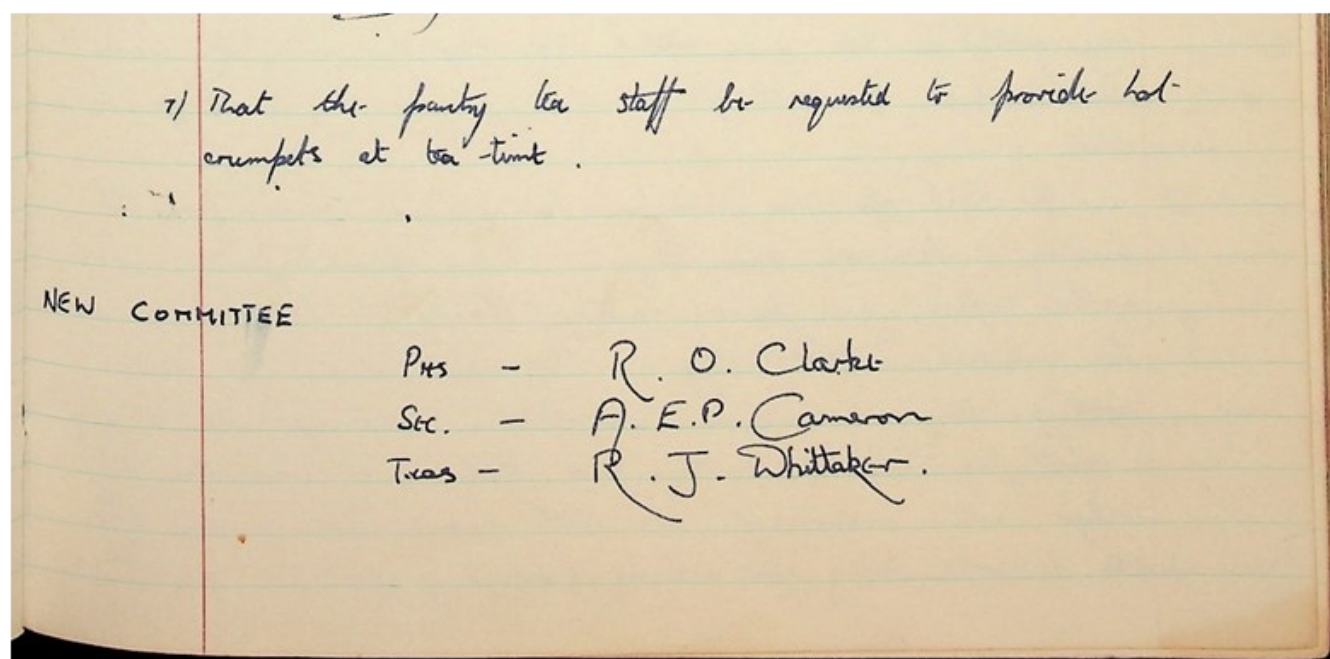 7) That the pantry tea staff be requested to provide hot
crumpets at tea-time.
NEW COMMITTEE
Pres - R. O. Clarke
Sec. - A. E. P. Cameron
Treas - R. J. Whittaker.